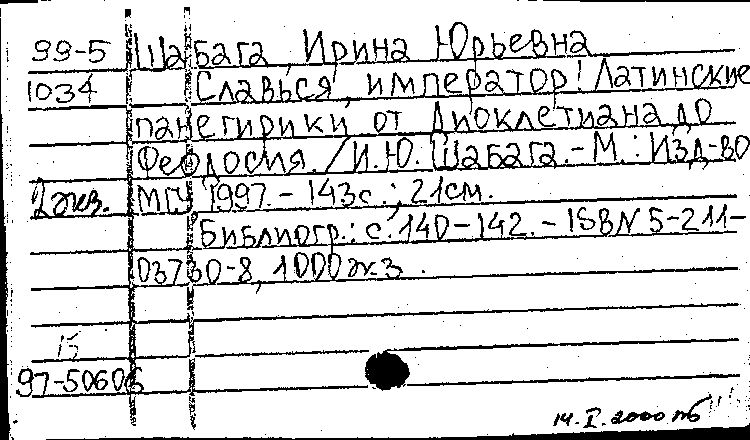 99-5 Шабага, Ирина Юрьевна
1034 Славься, император! Латинские
панегирики от Диоклетиана до
Феодосия. / И.Ю. Шабага. - М.: Изд-во
2 экз. МГУ 1997. - 143с.; 21см.
Библиогр.: с. 140-142. - ISBN 5-211-
03730-8, 1000 экз.
15
97-50606
14.I.2000